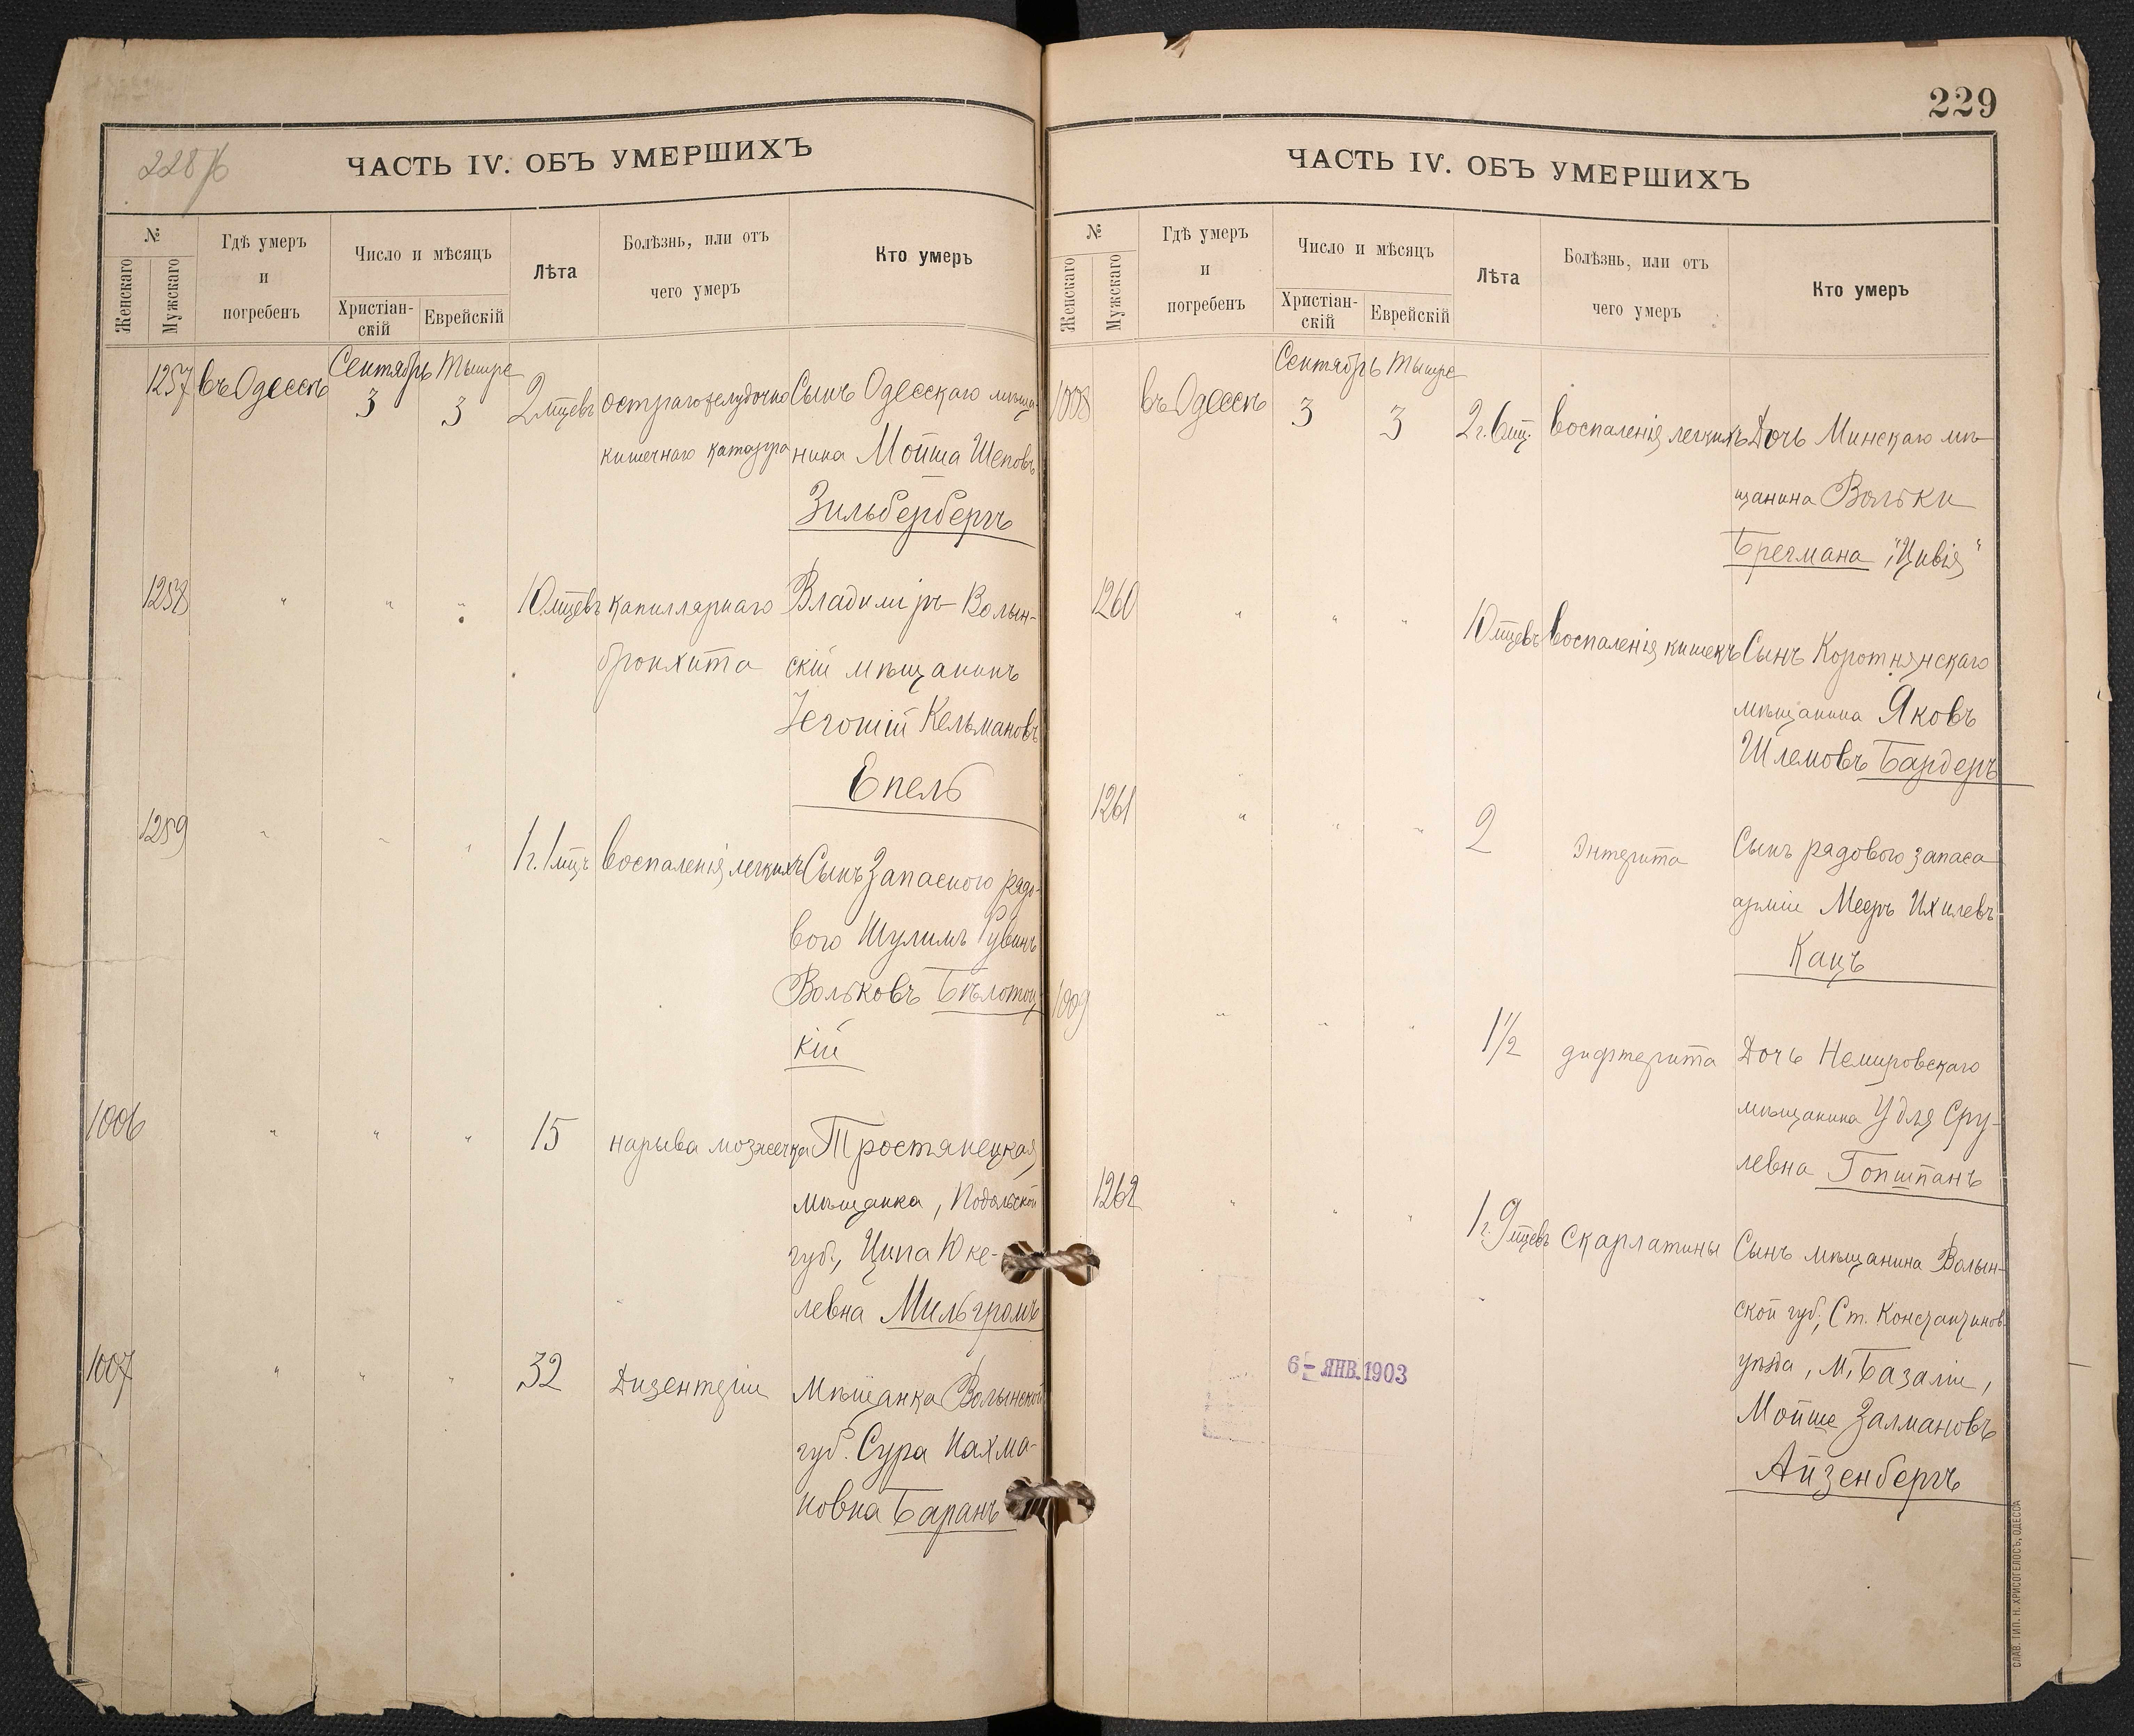 228/б
ЧАСТЬ IV. ОБЪ УМЕРШИХЪ
№
Женскаго
Мужскаго
Гдѣ умеръ
и
погребенъ
Число и мѣсяцъ
Христіан-
скій
Еврейскій
Лѣта
Болѣзнь, или отъ
чего умеръ
Кто умеръ
Сентябрь Тышре
1257 въ Одессѣ 3 3 2 мцевъ остраго желудочно Сынъ Одесскаго мѣща-
кишечнаго катарра нина Мойша Шеповъ
Зильбербергъ
1258 " " " 10 мцевъ капиллярнаго Владиміръ-Волын-
бронхита скій мѣщанинъ
Кельмановъ
Епель
1259 " " " 1 г. 1 мцъ воспаленія легкихъ Сынъ Запасного рядо-
вого Шулимъ Рувинъ
Вольковъ Бѣлотоц-
кій
1006 " " " 15 нарыва мозжечка Тростянецкая
мѣщанка, Подольской
губ., Ципа Юке-
левна Мильгромъ
1007 " " " 32 Дизентеріи Мѣщанка Волынской
губ. Сура Нахма-
новна Баранъ
229
ЧАСТЬ IV. ОБЪ УМЕРШИХЪ
№
Женскаго
Мужскаго
Гдѣ умеръ
и
погребенъ
Число и мѣсяцъ
Христіан-
скій
Еврейскій
Лѣта
Болѣзнь, или отъ
чего умеръ
Кто умеръ
Сентябрь Тышре
1008 въ Одессѣ 3 3 2 г. 6 мц. воспаленія легкихъ Дочь Минскаго мѣ-
щанина Вольки
Брегмана "Цивія"
1260 " " " 10 мцевъ воспаленія кишекъ Сынъ Коротнянскаго
мѣщанина Яковъ
Шлемовъ Бардеръ
1261 " " " 2 Энтерита Сынъ рядового запаса
арміи Мееръ Ихилевъ
Кацъ
1009 " " " 1½ дифтерита Дочь Немировскаго
мѣщанина Удля Сру-
левна Гопшпанъ
1262 " " " 1 г. 9 мцевъ Скарлатины Сынъ мѣщанина Волын-
ской губ., Ст. Константинов.
уѣзда, М. Базаліи,
Мойше Залмановъ
Айзенбергъ
6 - ЯНВ. 1903
СЛАВ. ТИП. Н. ХРИСОГЕЛОСЪ, ОДЕССА